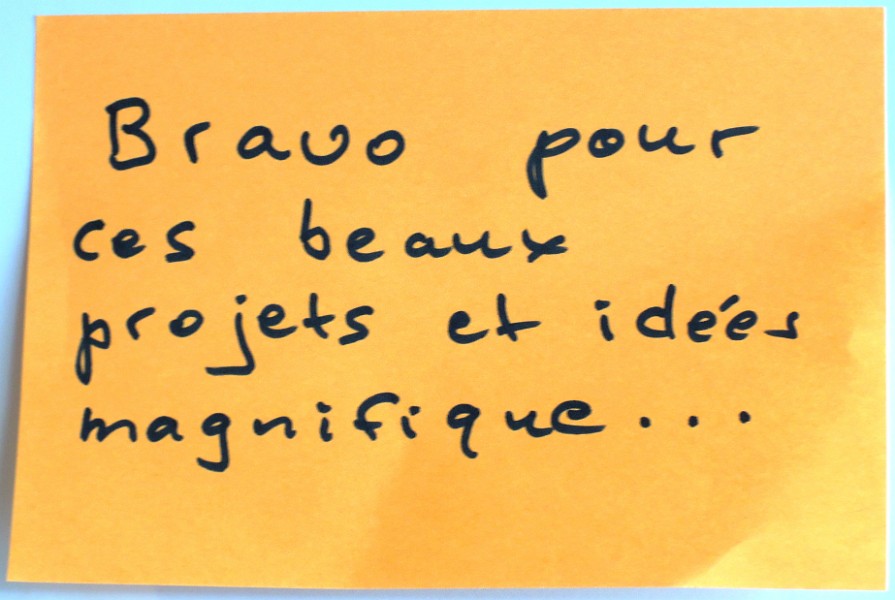 Bravo pour
ces beaux
projets et idées
magnifique...